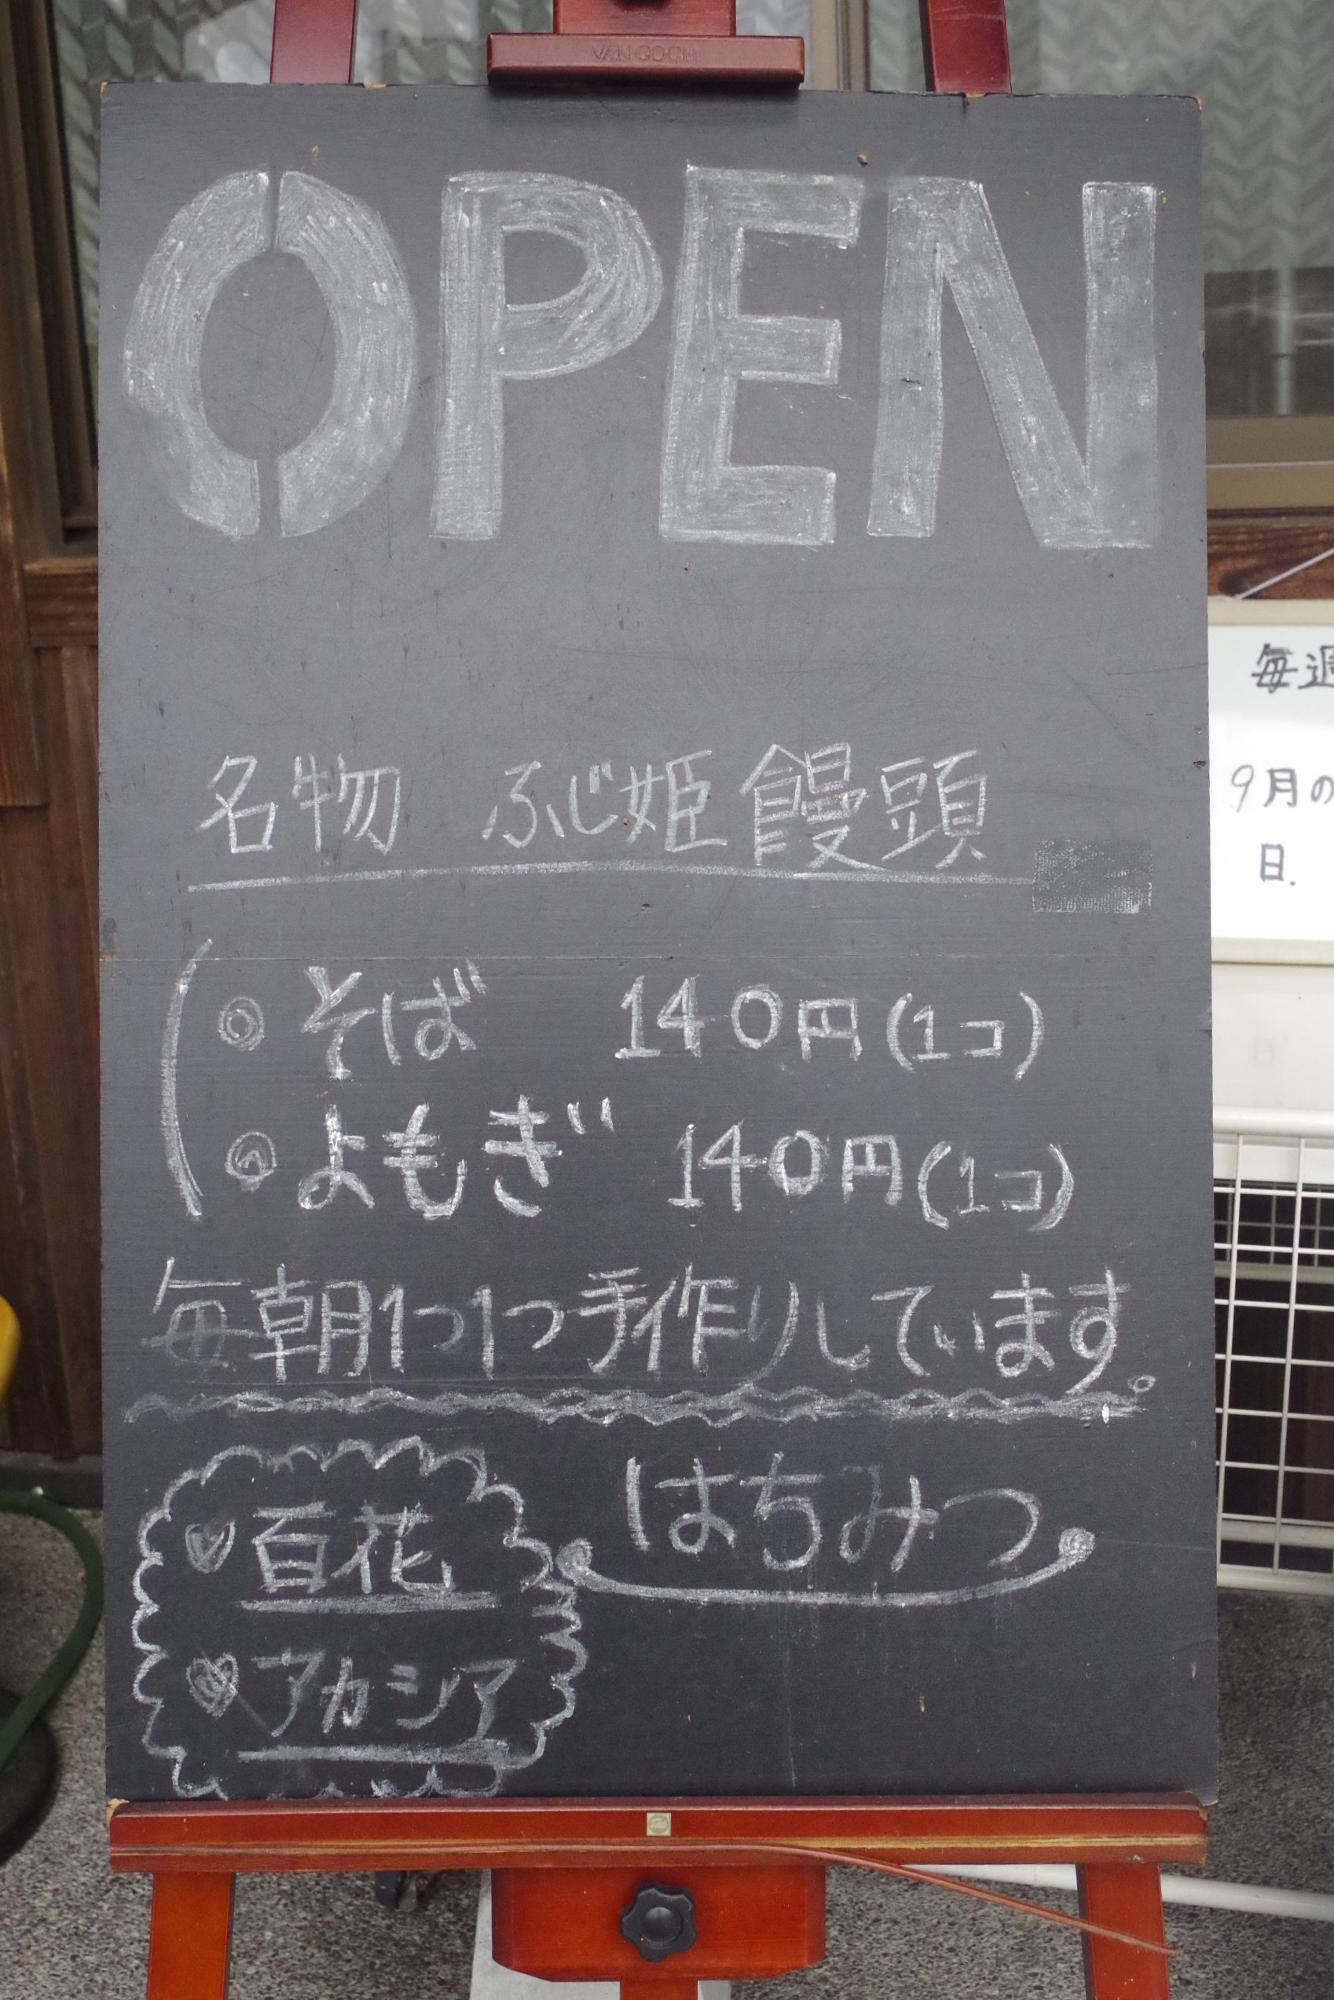 VAN GOGH
OPEN
名物 ふじ姫饅頭
◎ そば 140円(1コ)
◎ よもぎ 140円(1コ)
毎朝1つ1つ手作りしています。
はちみつ
百花
アカシア
毎週
9月の
日.